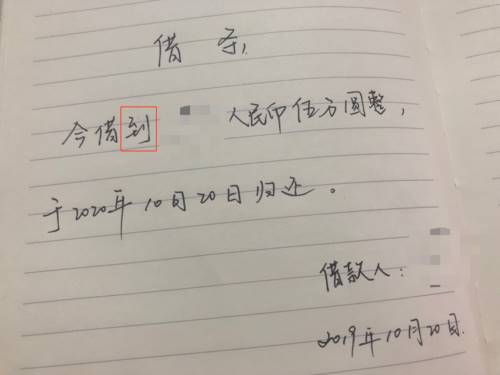 借条
今借到 人民币伍万圆整，
于2020年10月20日归还。
借款人：
2019年10月20日.